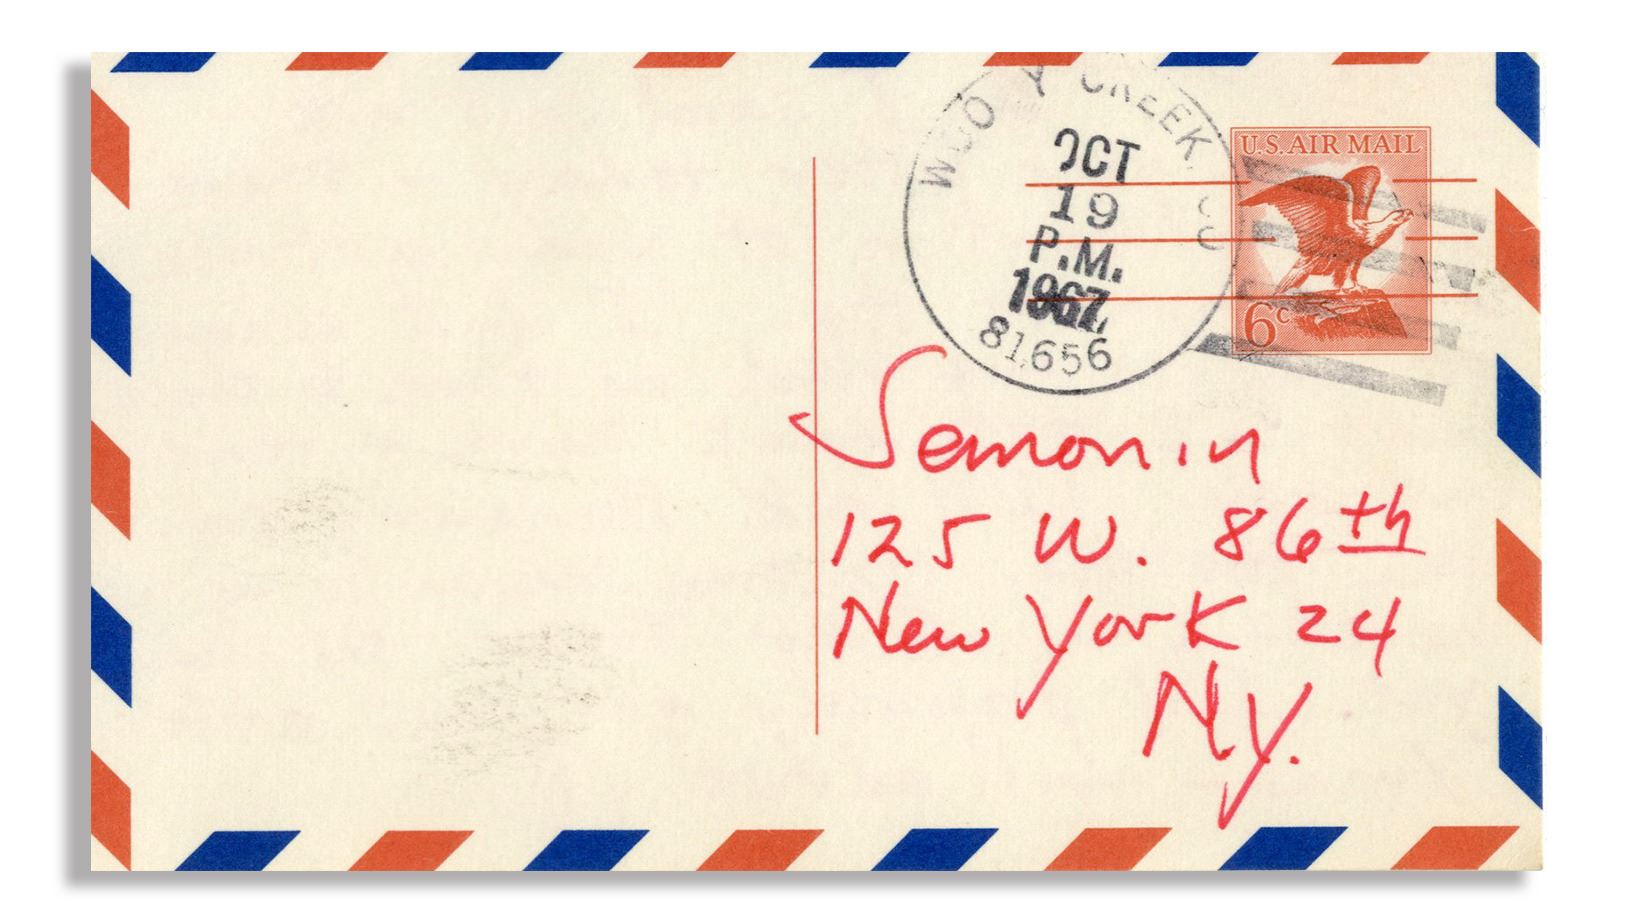 CREEK,
OCT
19
P.M.
1967
81656
U.S. AIR MAIL
6c
Semonin
125 W. 86th
New York 24
N.Y.